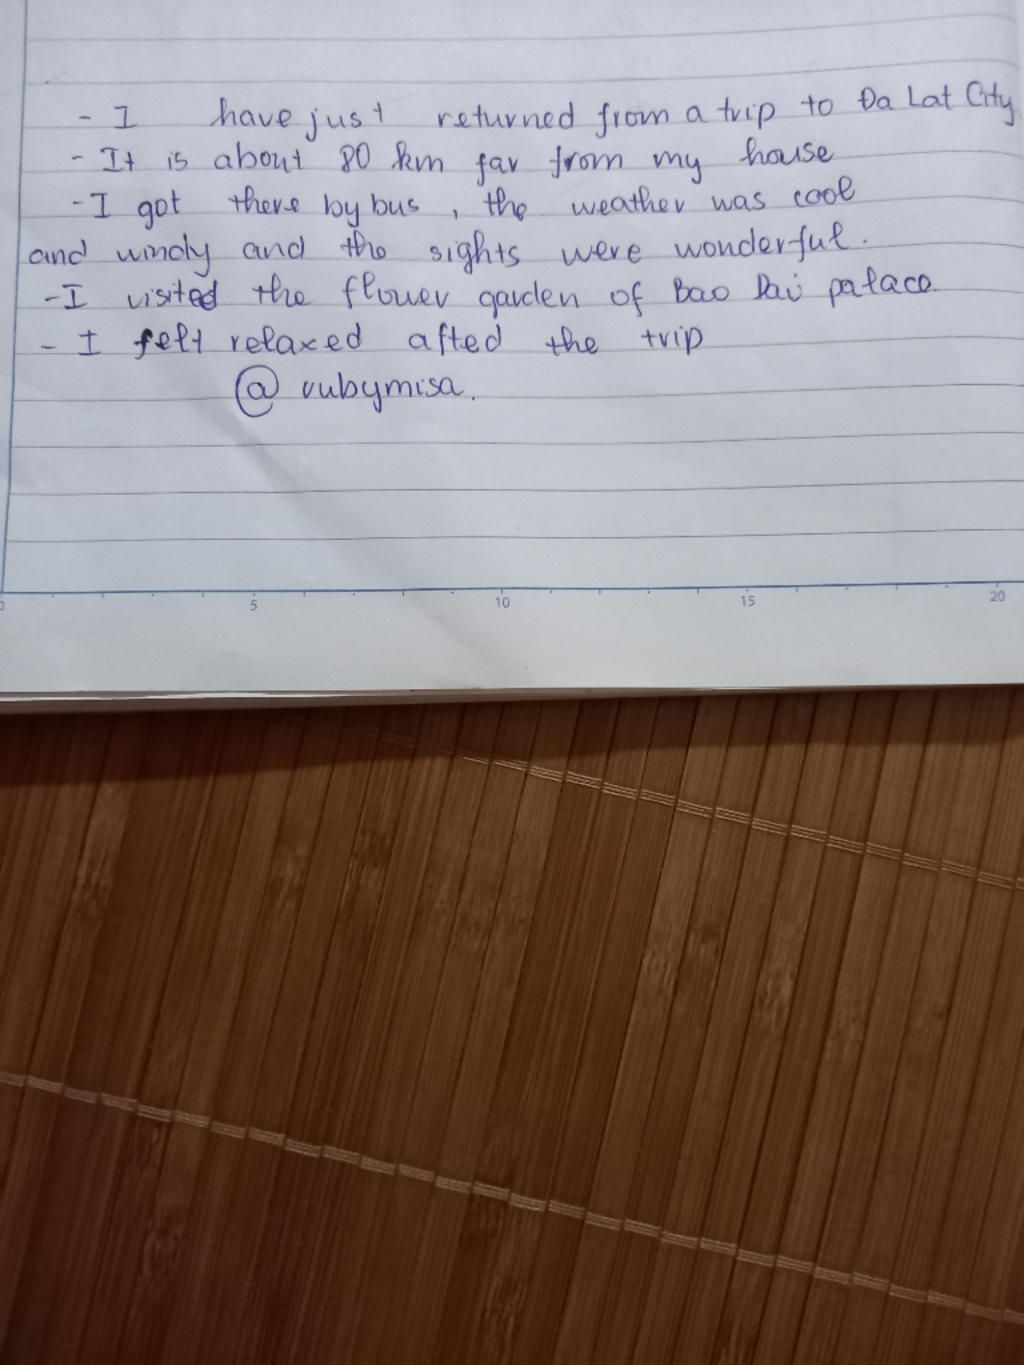 - I have just returned from a trip to Đa Lat City
- It is about 80 km far from my house
- I got there by bus , the weather was cool
and windy and the sights were wonderful.
- I visited the flower garden of Bao Dai palace.
- I felt relaxed afted the trip
@ rubymisa.
0 5 10 15 20